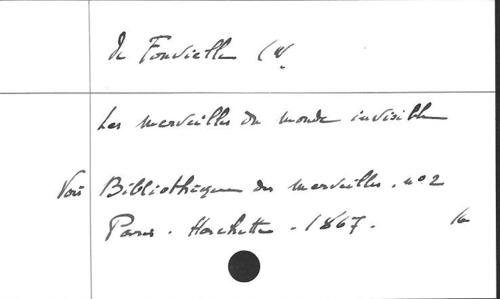 de Fonvielle (W.
Les merveilles du monde invisible
Voir Bibliothèque des merveilles. n° 2
Paris. Hachette. 1867. 16